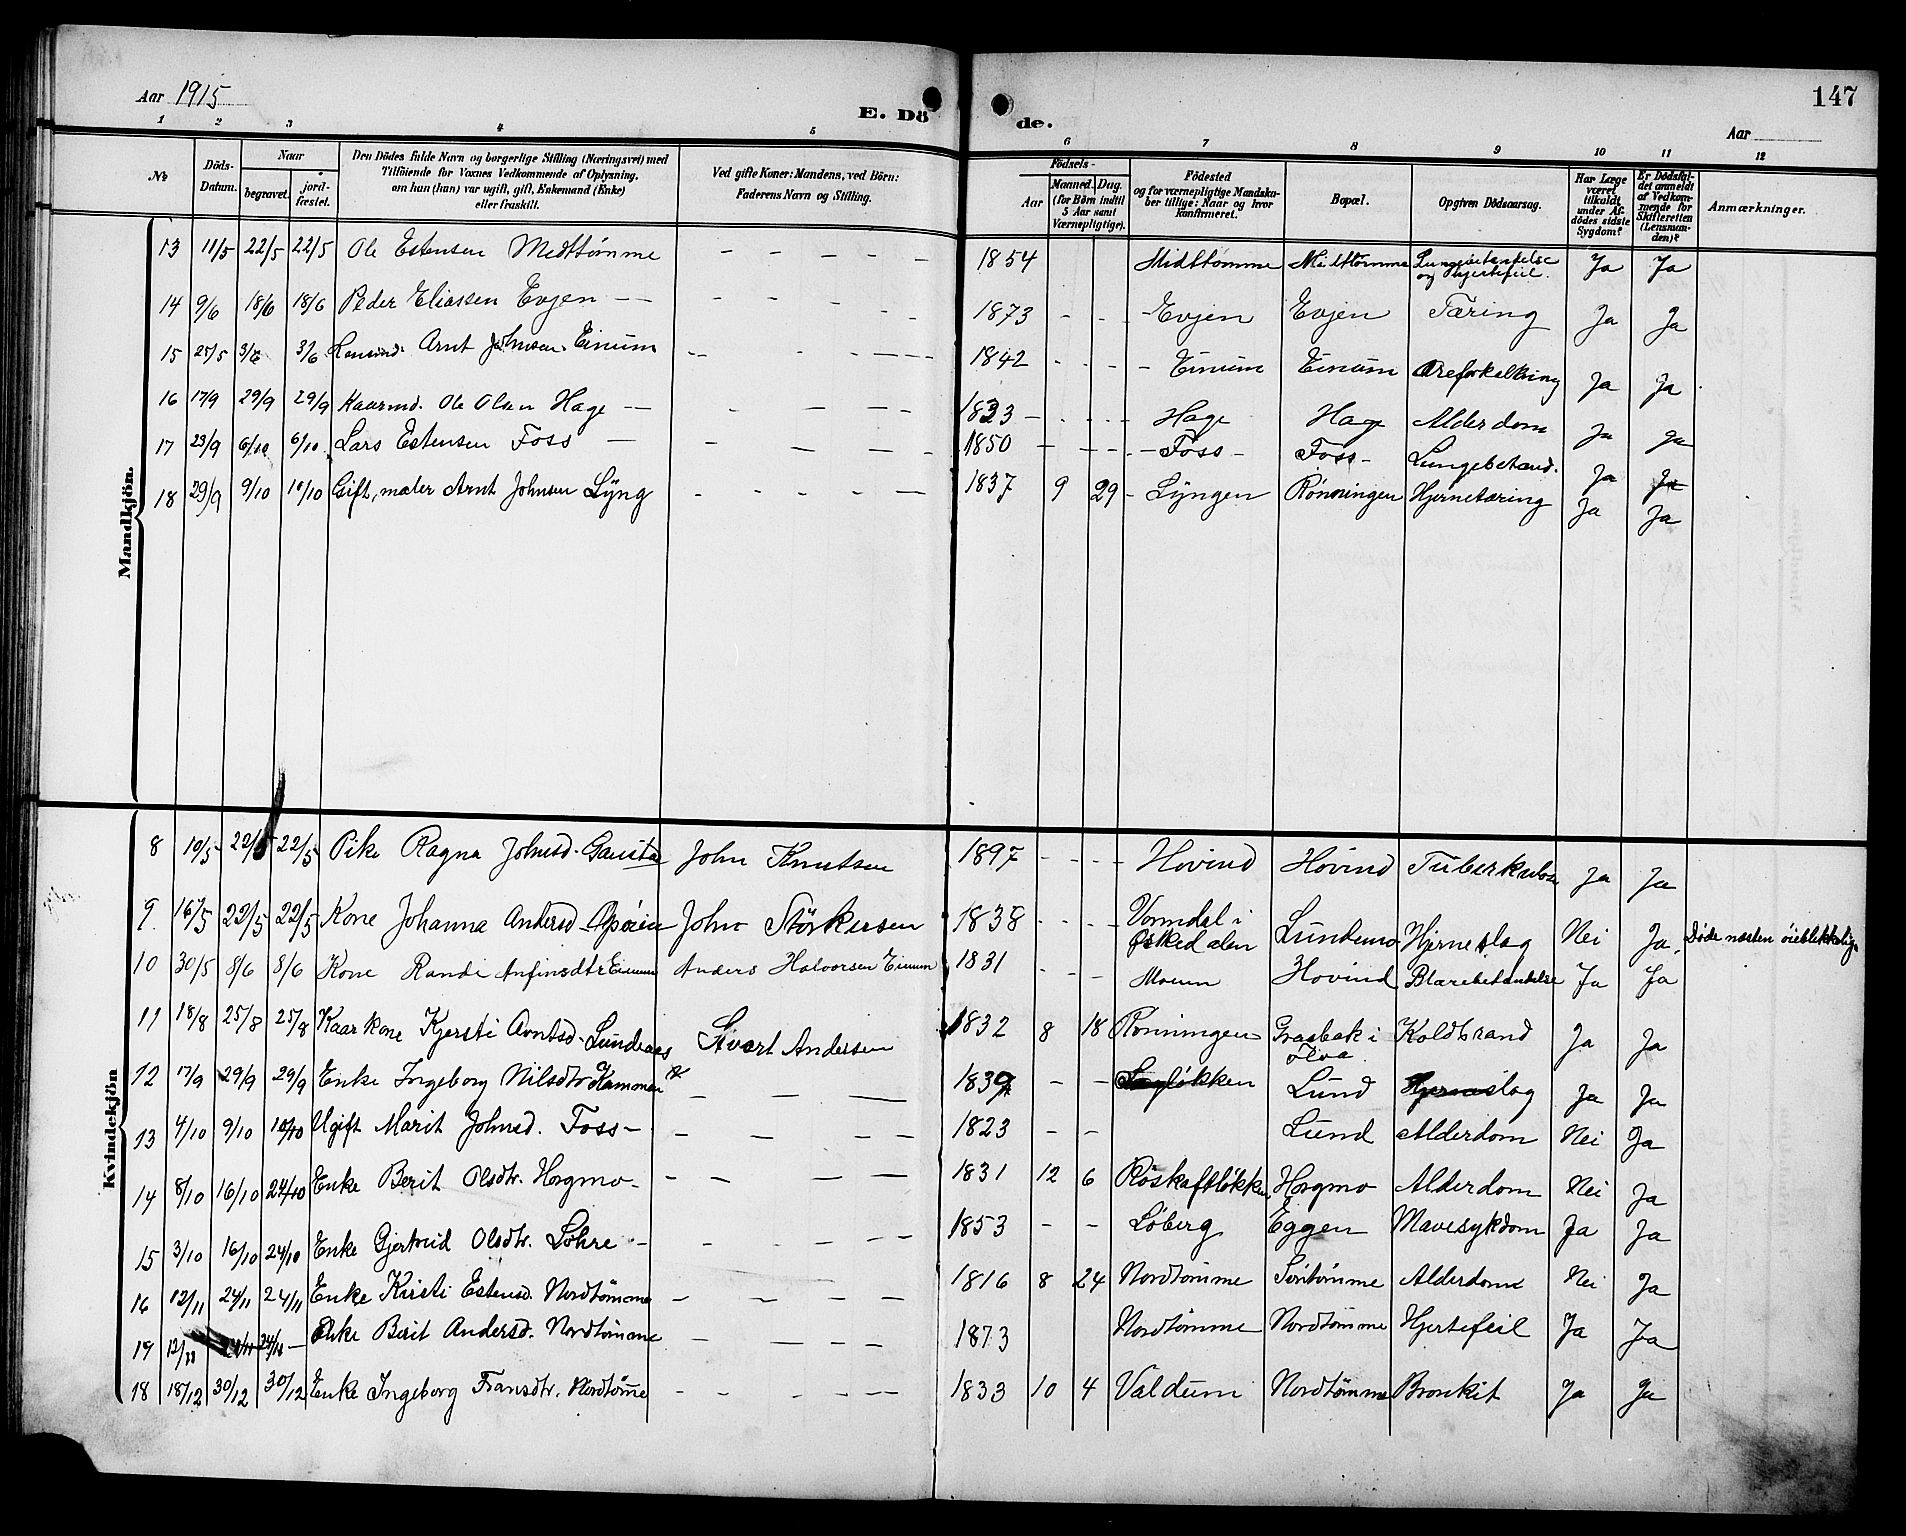 Aar 1915
E. Döde.
147
Aar
1 2 3 4 5 6 7 8 9 10 11 12
№ Döds-Datum. Naar begravet. jordfæstet. Den Dödes fulde Navn og borgerlige Stilling (Næringsvei) med Tilföiende for Voxnes Vedkommende af Oplysning, om hun (han) var ugift, gift, Enkemand (Enke) eller fraskilt. Ved gifte Koner: Mandens, ved Börn: Faderens Navn og Stilling. Födsels- Aar Maaned. Dag. (for Börn indtil 5 Aar samt Værnepligtige). Födested og for værnepligtige Mandskaber tillige: Naar og hvor konfirmeret. Bopæl. Opgiven Dödsaarsag. Har Læge været tilkaldt under Afdödes sidste Sygdom? Er Dödsfaldet anmeldt af Vedkommende for Skifteretten (Lensmanden)? Anmærkninger.
Mandkjön.
13 11/5 22/5 22/5 Ole Estensen Medttømme – – – – – 1854 Midttømme Midttømme Lungebetændelse og Hjertefeil. Ja Ja
14 9/6 18/6 18/6 Peder Eliassen Evjen – – – – – – – 1873 – – – – Evjen Evjen Tæring Ja Ja
15 25/5 3/6 3/6 Arnt Johnsen Einum – – – – – – 1842 – – – – Einum Einum Aareforkalkning Ja Ja
16 17/9 29/9 29/9 Kaarmd. Ole Olsen Hage – – – – – – 1833 – – – – Hage Hage Alderdom Ja Ja
17 23/9 6/10 6/10 Lars Estensen Foss – – – – 1850 – – – – Foss – Foss – Lungebetænd. Ja Ja
18 29/9 9/10 10/10 Gift, maler Arnt Johnsen Lyng – – – – – 1837 9 29 – Lyngen Rønningen Hjernetæring Ja Ja
Kvindekjön
8 10/5 22/5 22/5 Pike Ragna Johnsd. Gausta John Knutsen 1897 – – – – Hovind Hovind Tuberkulose Ja Ja
9. 16/5 22/5 22/5 Kone Johanna Andersd. John Störkersen 1838 – – – – Vormdal i Ørkedalen Lundemo Hjerneslag Nei Ja. Døde næsten øieblikkelig.
10 30/5 8/6 8/6 Kone Randi Anfinsdtr Einum Anders Halvorsen Einum 1831 – – – Moeen Hovind Blærebetændelse Ja Ja
11 18/8 25/8 25/8 Kaarkone Kjersti Arntsd. Lundraas Sivert Andersen 1832 8 18 Rønningen Græsbak i Koldbrand Ja Ja
12 17/9 29/9 29/9 Enke Ingeborg Nilsdtr Kammen – – – – 1839 – – Lund Hjerneslag Ja Ja
13 4/10 9/10 10/10 Ugift Marit Johnsd. Foss – – – – – 1823 – – Lund Alderdom Nei Ja
14 8/10 16/10 24/10 Enke Berit Olsdtr. Horgmo – – – – – 1831 12 6 Røskaftløkken Horgmo Alderdom Nei Ja
15 3/10 16/10 24/10 Enke Gjertrud Olsdtr. Løhre – – – – – 1853 – – Løberg Eggen Mavesykdom Ja Ja
16 12/11 24/11 24/11 Enke Kirsti Estensd. Nordtømme – – – – 1816 8 24 Nordtømme Sörtömme Alderdom Nei Ja
Enke Berit Andersd. Nordtømme – – – – 1873 Nordtømme Nordtømme Hjertefeil Ja Ja
18 18/12 30/12 30/12 Enke Ingeborg Fransdtr. Nordtømme – – – – – 1833 10 4 Valdum Nordtømme Bronkit Ja Ja